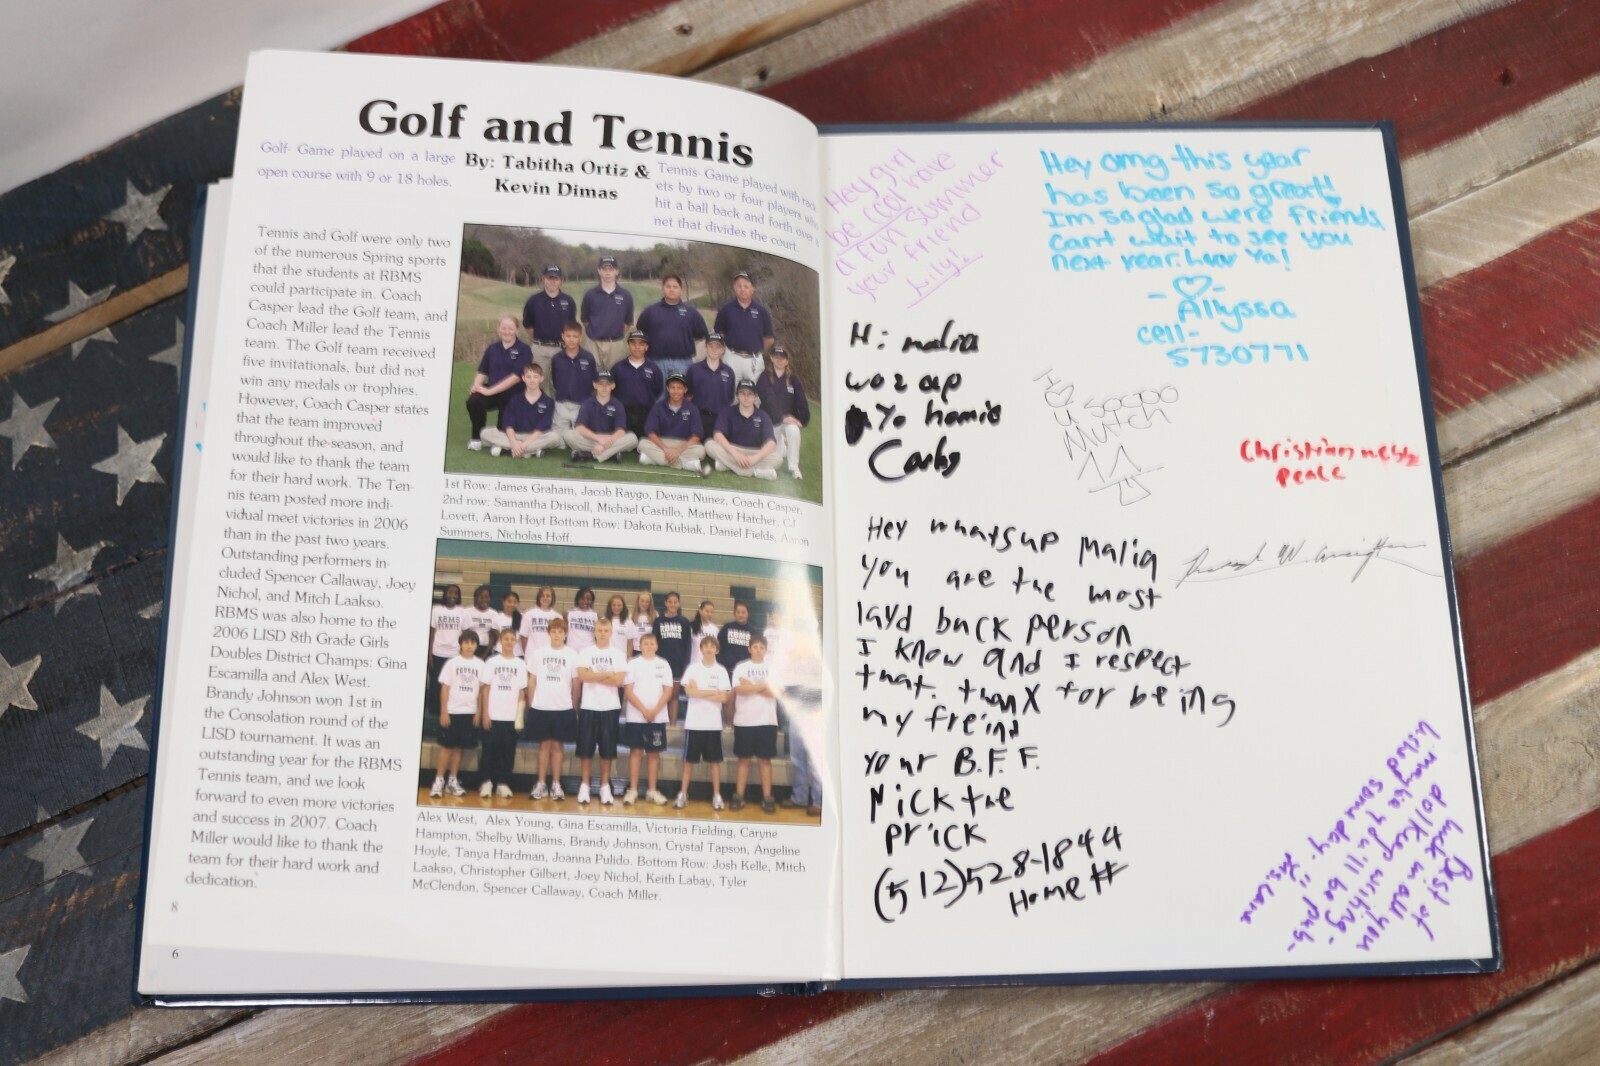 Golf and Tennis
By: Tabitha Ortiz &
Kevin Dimas
Golf- Game played on a large
open course with 9 or 18 holes.
Tennis- Game played with
ets by two or four players
hit a ball back and forth over a
net that divides the court.
Tennis and Golf were only two
of the numerous Spring sports
that the students at RBMS
could participate in. Coach
Casper lead the Golf team, and
Coach Miller lead the Tennis
team. The Golf team received
five invitationals, but did not
win any medals or trophies.
However, Coach Casper states
that the team improved
throughout the season, and
would like to thank the team
for their hard work. The Ten-
nis team posted more indi-
vidual meet victories in 2006
than in the past two years.
Outstanding performers in-
cluded Spencer Callaway, Joey
Nichol, and Mitch Laakso.
RBMS was also home to the
2006 LISD 8th Grade Girls
Doubles District Champs: Gina
Escamilla and Alex West.
Brandy Johnson won 1st in
the Consolation round of the
LISD tournament. It was an
outstanding year for the RBMS
Tennis team, and we look
forward to even more victories
and success in 2007. Coach
Miller would like to thank the
team for their hard work and
dedication.
8
6
1st Row: James Graham, Jacob Raygo, Devan Nunez, Coach Casper.
2nd row: Samantha Driscoll, Michael Castillo, Matthew Hatcher, CJ
Lovett, Aaron Hoyt Bottom Row: Dakota Kubiak, Daniel Fields, Aaron
Summers, Nicholas Hoff.
RBMS
TENNIS
RBMS
TENNIS
RBMS
TENNIS
RBMS
TENNIS
Alex West, Alex Young, Gina Escamilla, Victoria Fielding, Caryne
Hampton, Shelby Williams, Brandy Johnson, Crystal Tapson, Angeline
Hoyle, Tanya Hardman, Joanna Pulido. Bottom Row: Josh Kelle, Mitch
Laakso, Christopher Gilbert, Joey Nichol, Keith Labay, Tyler
McClendon, Spencer Callaway, Coach Miller.
Hey girl
be cool have
a fun summer
your friend
Lily!
Hey omg this year
has been so great!!
Im so glad were friends
Cant wait to see you
next year. Luv Ya!
-♡-
Allyssa
cell-
5730771
Hi malia
woz up
Yo homie
Carlos
I ♡
u soooo
Mutch
Christian ness
peace
Hey whats up Malia
you are the most
layd back person
I know and I respect
that. thanx for being
my freind
your B.F.F.
Nick the
prick
(512)528-1844
Home #
Best of
luck in all you
do! Keep writing-
maybe you'll be pub-
lished some day.